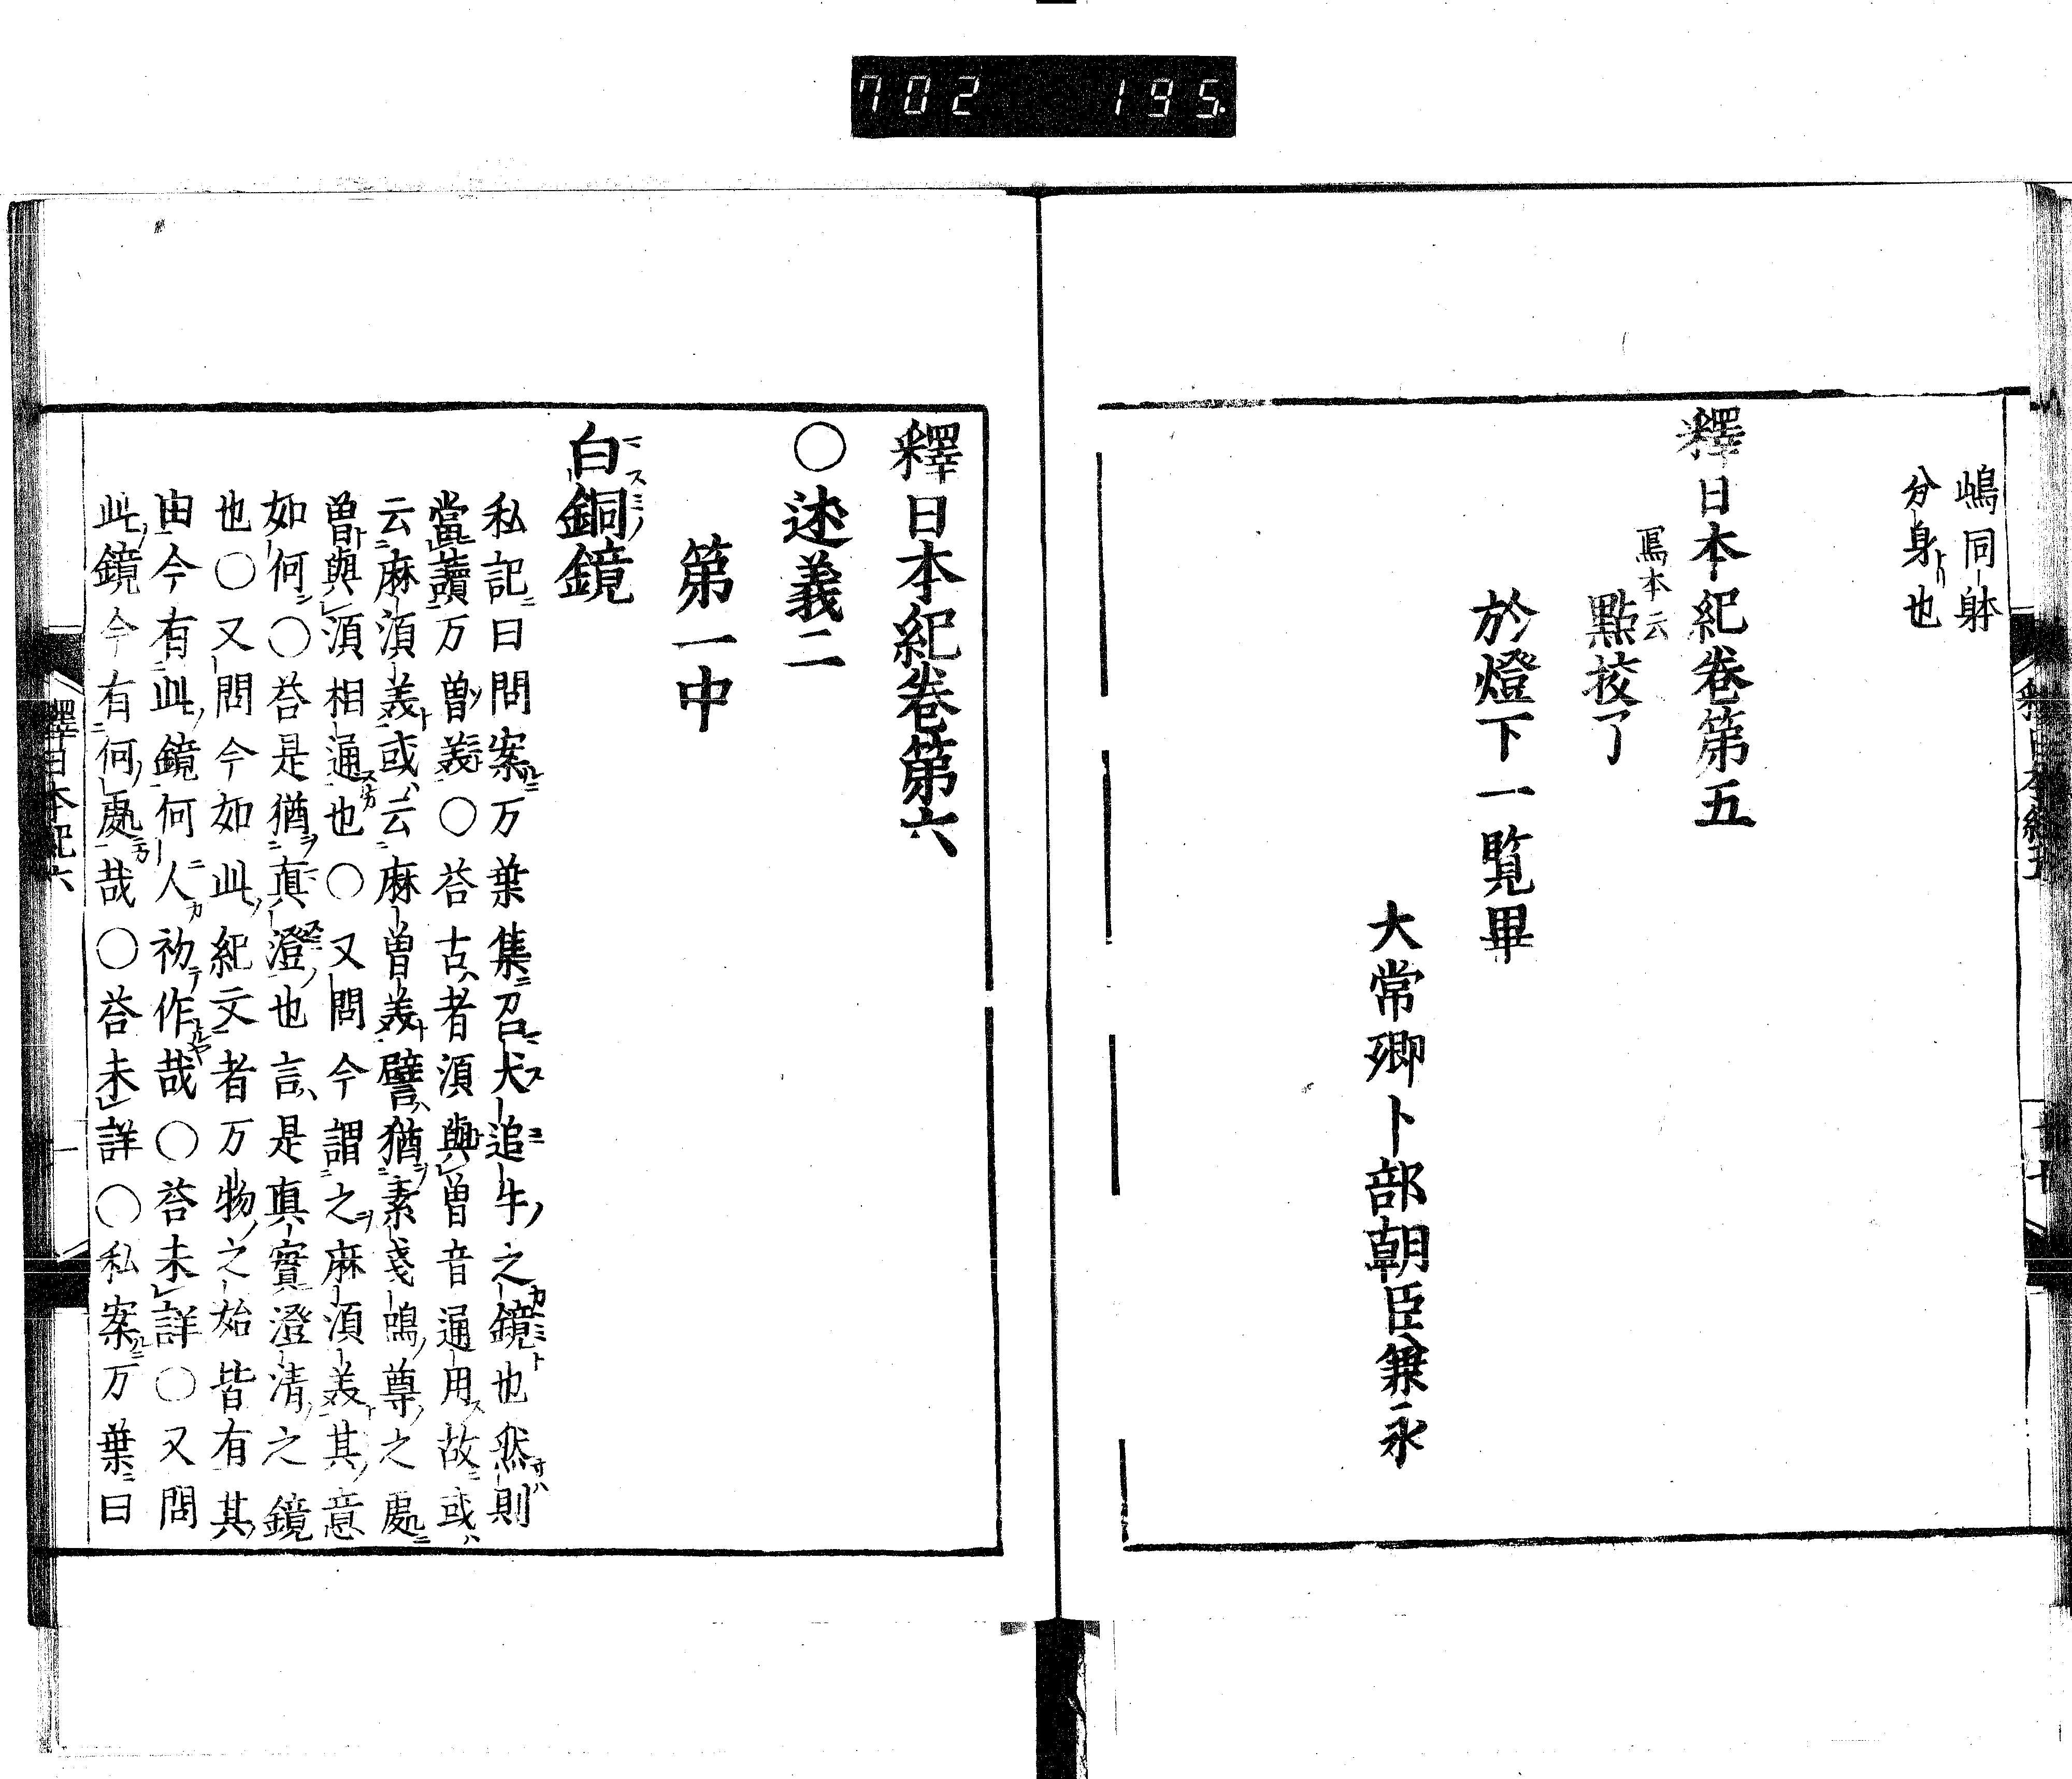 702 195
嶋同躰
分身也
釋日本紀卷第五
寫本云
點挍了
於燈下一覧畢
大常卿卜部朝臣兼永
釋日本紀卷第六
○述義二
第一中
白銅鏡
私記曰問案万葉集召犬追牛之鏡也然則
當讀万曽義○荅古者湏與曽音通用故或
云麻湏義或云麻曽義譬猶素戔嗚尊之處
曽與湏相通也○又問今謂之麻湏義其意
如何○荅是猶真澄也言是真實澄清之鏡
也○又問今如此紀文者万物之始皆有其
由今有此鏡何人初作哉○荅未詳○又問
此鏡今有何處哉○荅未詳○私案万葉曰
釋日本紀六
一